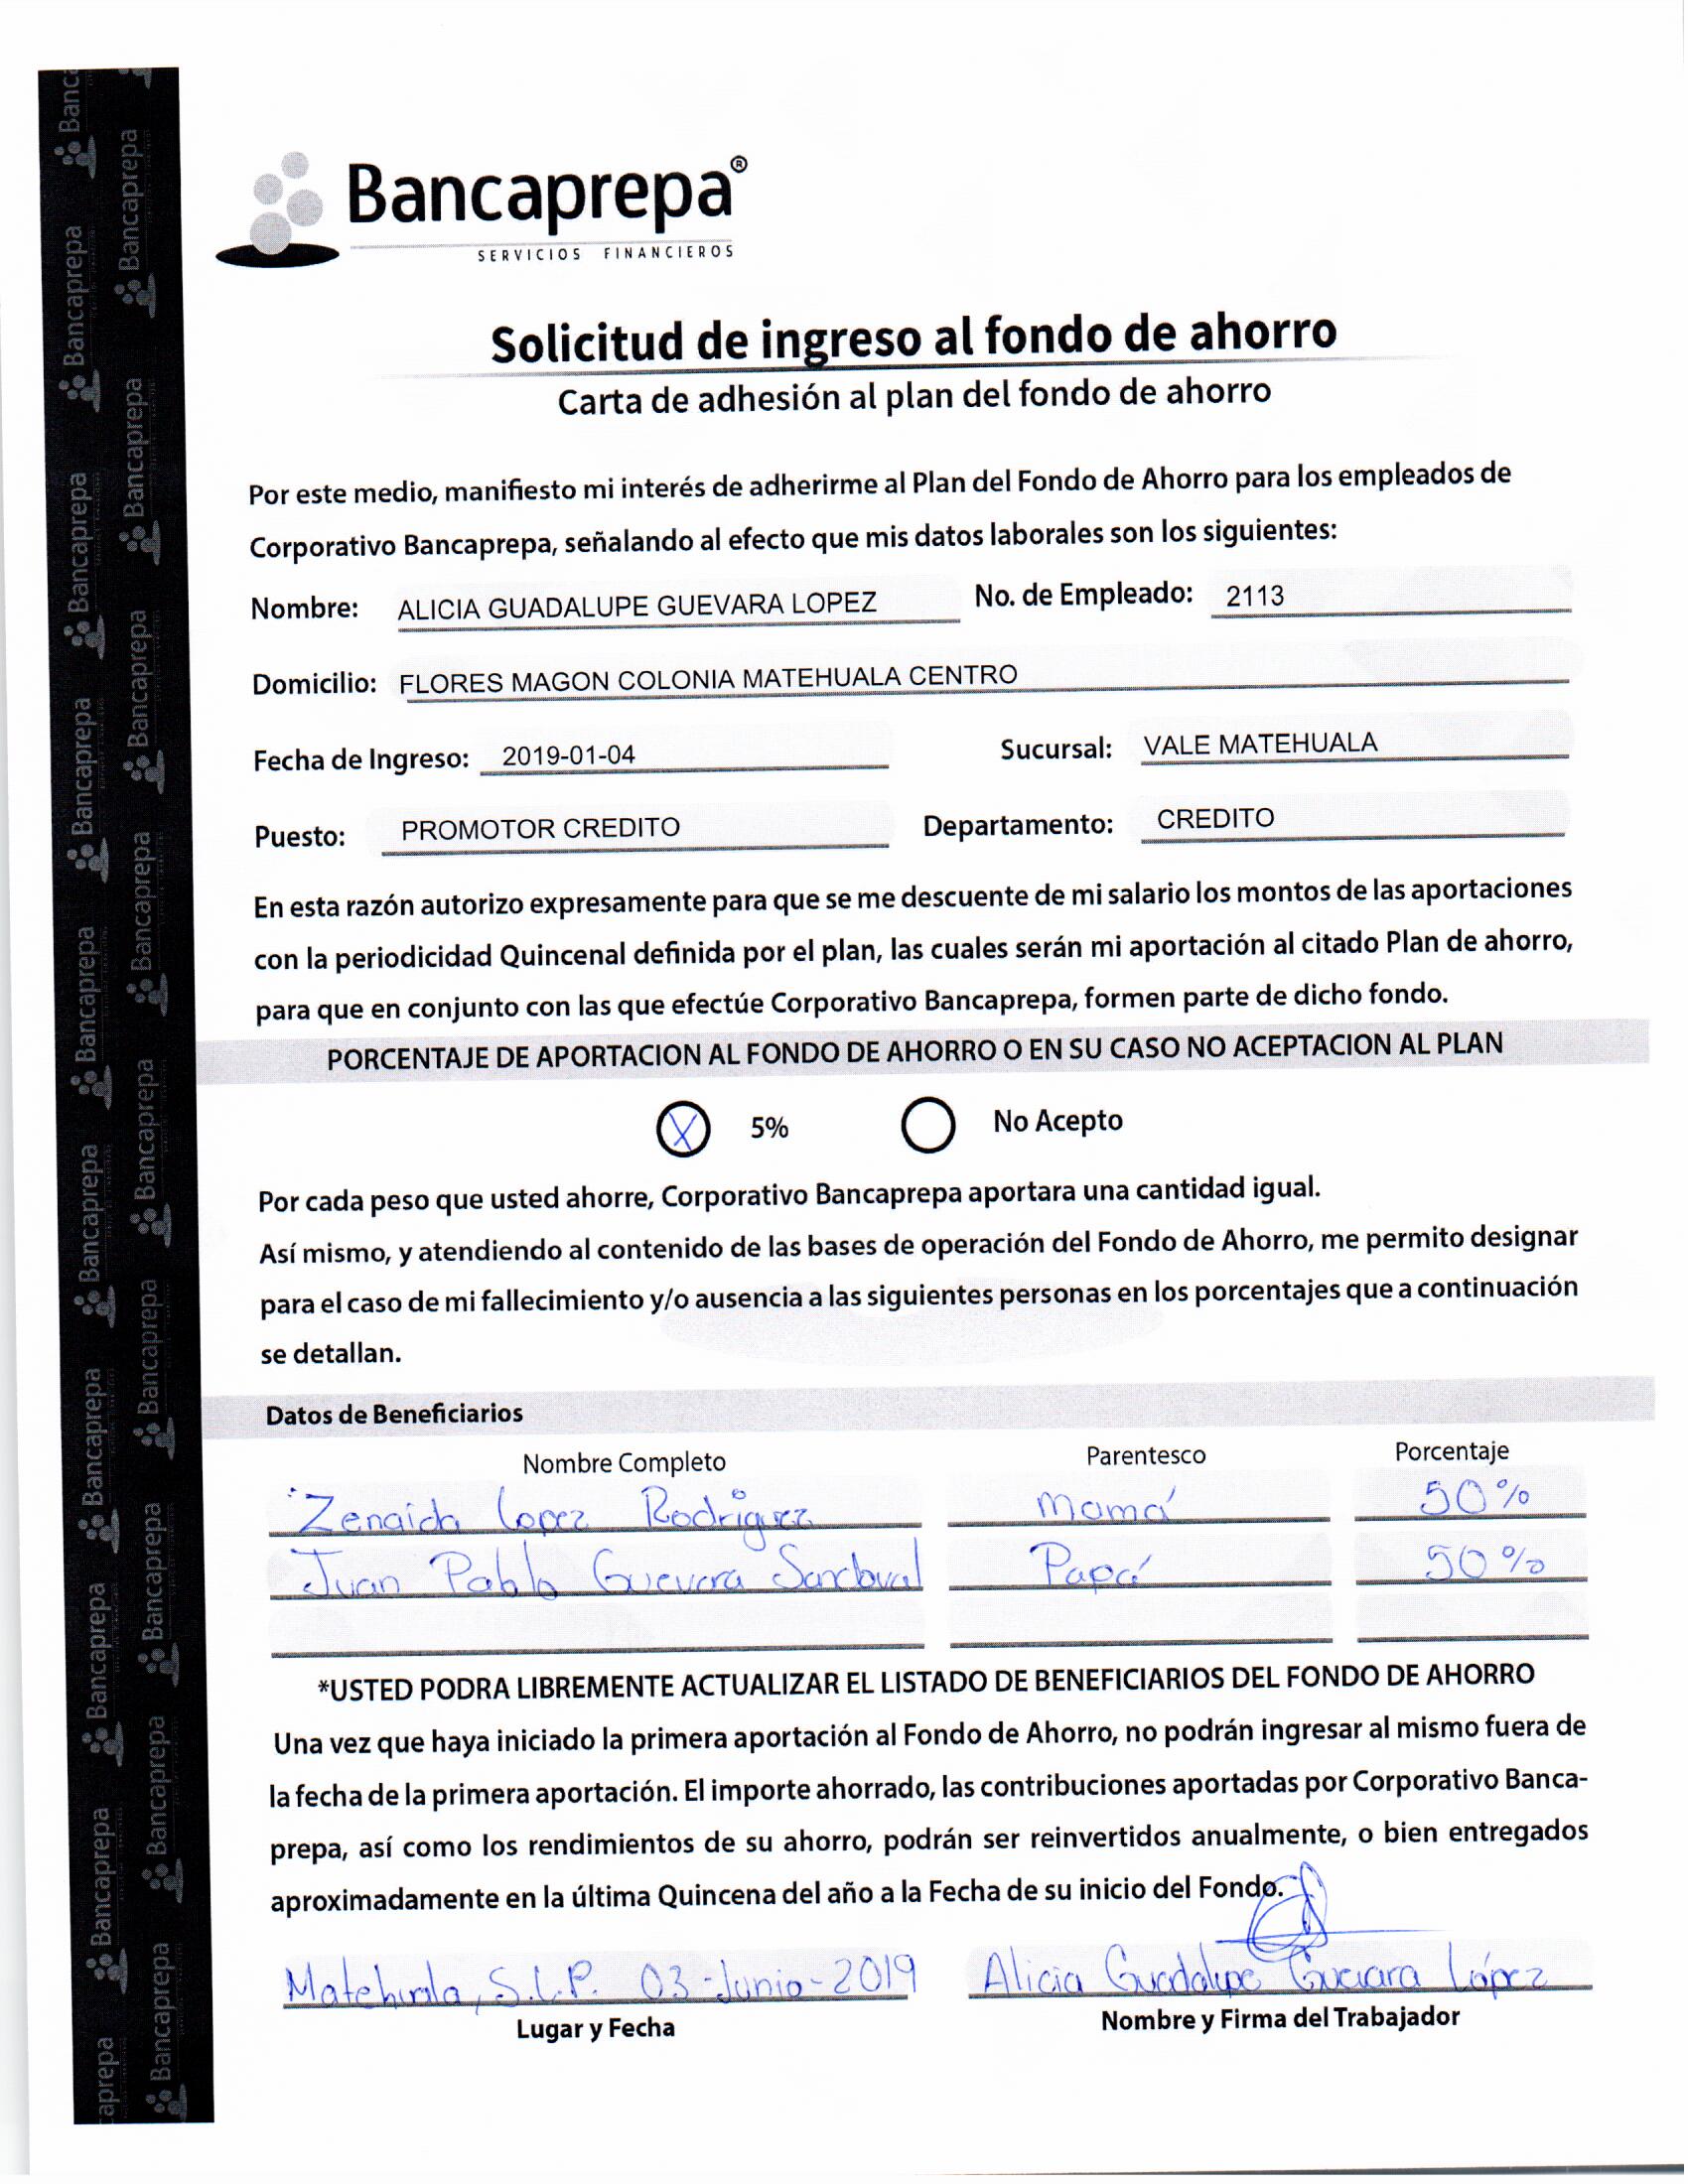 Bancaprepa®
SERVICIOS FINANCIEROS
Solicitud de ingreso al fondo de ahorro
Carta de adhesión al plan del fondo de ahorro
Por este medio, manifiesto mi interés de adherirme al Plan del Fondo de Ahorro para los empleados de
Corporativo Bancaprepa, señalando al efecto que mis datos laborales son los siguientes:
Nombre: ALICIA GUADALUPE GUEVARA LOPEZ No. de Empleado: 2113
Domicilio: FLORES MAGON COLONIA MATEHUALA CENTRO
Fecha de Ingreso: 2019-01-04 Sucursal: VALE MATEHUALA
Puesto: PROMOTOR CREDITO Departamento: CREDITO
En esta razón autorizo expresamente para que se me descuente de mi salario los montos de las aportaciones
con la periodicidad Quincenal definida por el plan, las cuales serán mi aportación al citado Plan de ahorro,
para que en conjunto con las que efectúe Corporativo Bancaprepa, formen parte de dicho fondo.
PORCENTAJE DE APORTACION AL FONDO DE AHORRO O EN SU CASO NO ACEPTACION AL PLAN
X 5% No Acepto
Por cada peso que usted ahorre, Corporativo Bancaprepa aportara una cantidad igual.
Así mismo, y atendiendo al contenido de las bases de operación del Fondo de Ahorro, me permito designar
para el caso de mi fallecimiento y/o ausencia a las siguientes personas en los porcentajes que a continuación
se detallan.
Datos de Beneficiarios
Nombre Completo Parentesco Porcentaje
Zenaida Lopez Rodriguez Mamá 50%
Juan Pablo Guevara Sandoval Papá 50%
*USTED PODRA LIBREMENTE ACTUALIZAR EL LISTADO DE BENEFICIARIOS DEL FONDO DE AHORRO
Una vez que haya iniciado la primera aportación al Fondo de Ahorro, no podrán ingresar al mismo fuera de
la fecha de la primera aportación. El importe ahorrado, las contribuciones aportadas por Corporativo Banca-
prepa, así como los rendimientos de su ahorro, podrán ser reinvertidos anualmente, o bien entregados
aproximadamente en la última Quincena del año a la Fecha de su inicio del Fondo.
Matehuala, S.L.P. 03-Junio-2019 Alicia Guadalupe Guevara López
Lugar y Fecha Nombre y Firma del Trabajador